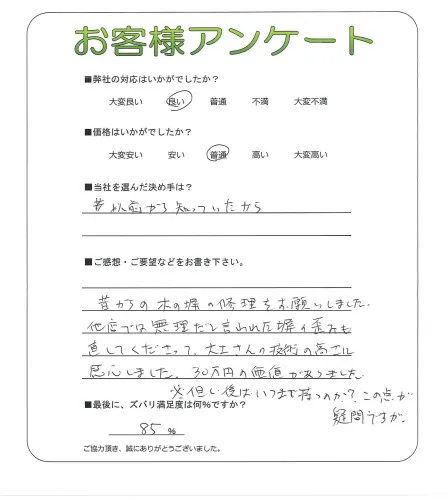 お客様アンケート
■弊社の対応はいかがでしたか?
大変良い 良い 普通 不満 大変不満
■価格はいかがでしたか?
大変安い 安い 普通 高い 大変高い
■当社を選んだ決め手は?
昔以前から知っていたから
■ご感想・ご要望などをお書き下さい。
昔からの木の塀の修理をお願いしました.
他店では無理だと言われた塀の歪みも
直してくださって、大工さんの技術の高さに
感心しました. 30万円の価値がありました.
但し後はいつまで持つのか?この点が
疑問ですが.
■最後に、ズバリ満足度は何%ですか?
85 %
ご協力頂き、誠にありがとうございました。